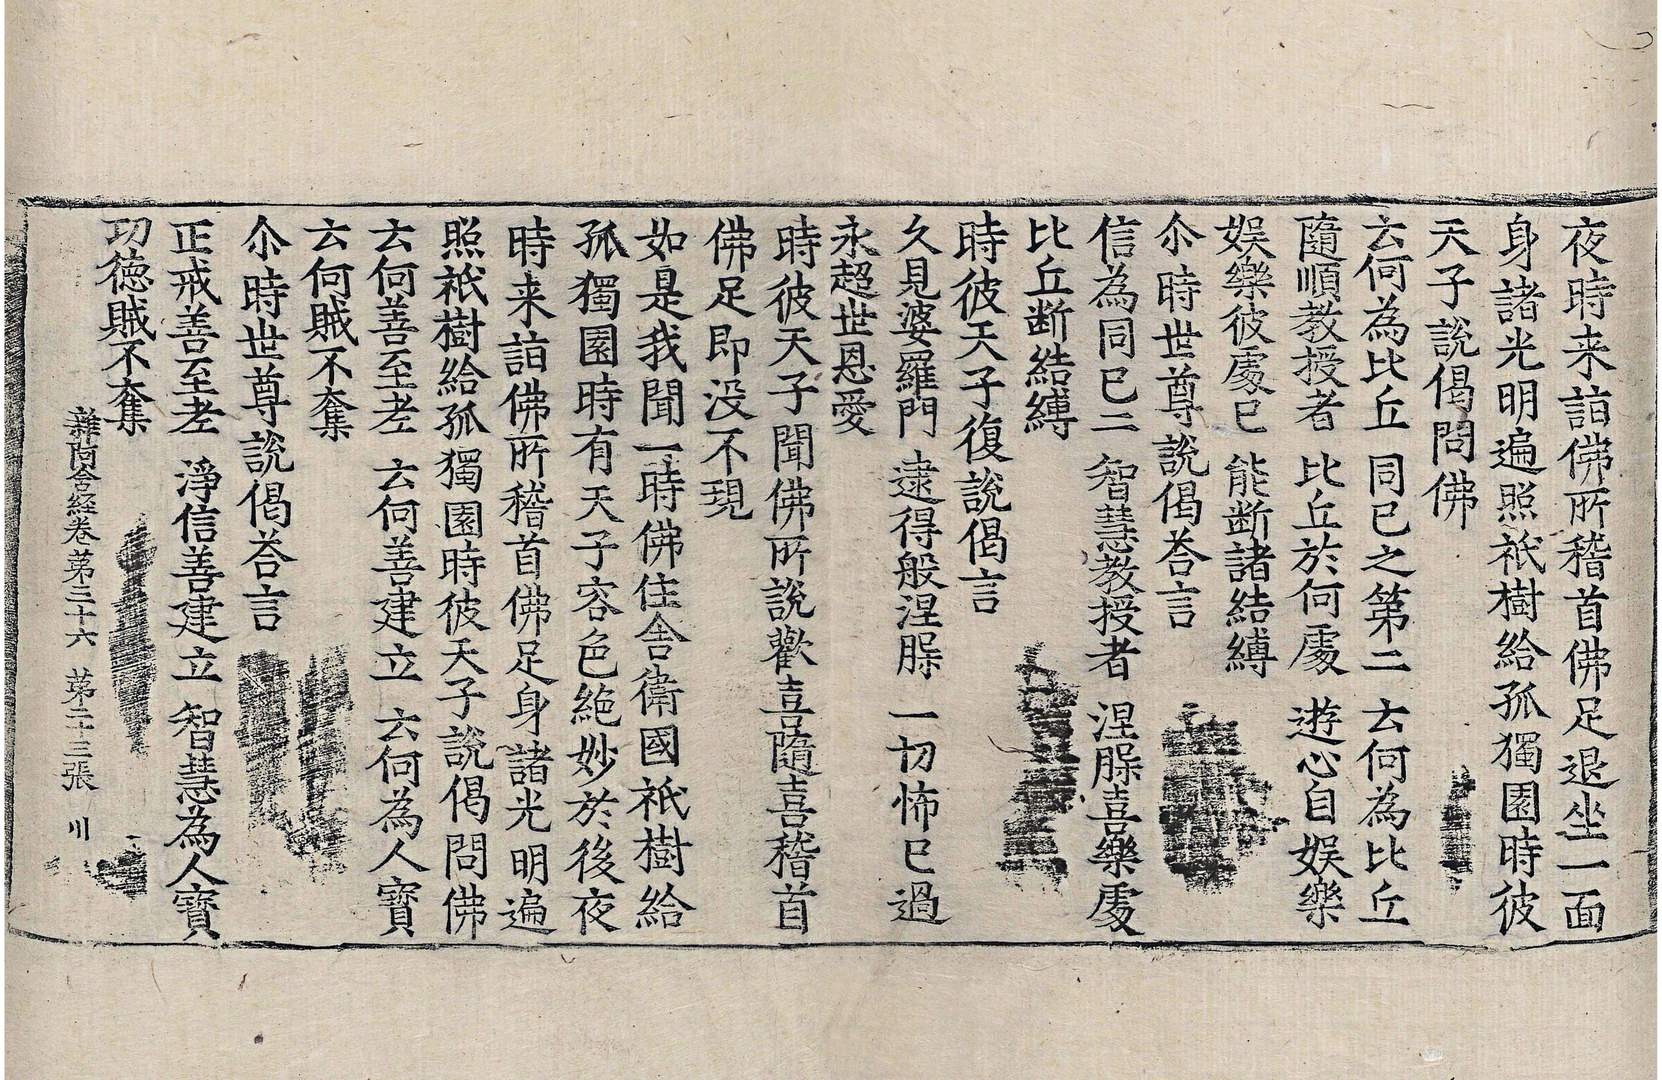 夜時来詣佛所稽首佛足退坐一面
身諸光明遍照祇樹給孤獨園時彼
天子說偈問佛
云何為比丘 同已之第二 云何為比丘
隨順教授者 比丘於何處 遊心自娛樂
娛樂彼處已 能断諸結縛
尒時世尊說偈荅言
信為同已二 智慧教授者 涅槃喜樂處
比丘断結縛
時彼天子復說偈言
久見婆羅門 逮得般涅槃 一切怖已過
永超世恩愛
時彼天子聞佛所說歡喜隨喜稽首
佛足即没不現
如是我聞一時佛住舍衛國祇樹給
孤獨園時有天子容色絶妙於後夜
時来詣佛所稽首佛足身諸光明遍
照祇樹給孤獨園時彼天子說偈問佛
云何善至老 云何善建立 云何為人寶
云何賊不奪
尒時世尊說偈荅言
正戒善至老 淨信善建立 智慧為人寶
功德賊不奪
雜阿含経卷苐三十六 苐二十三張 川